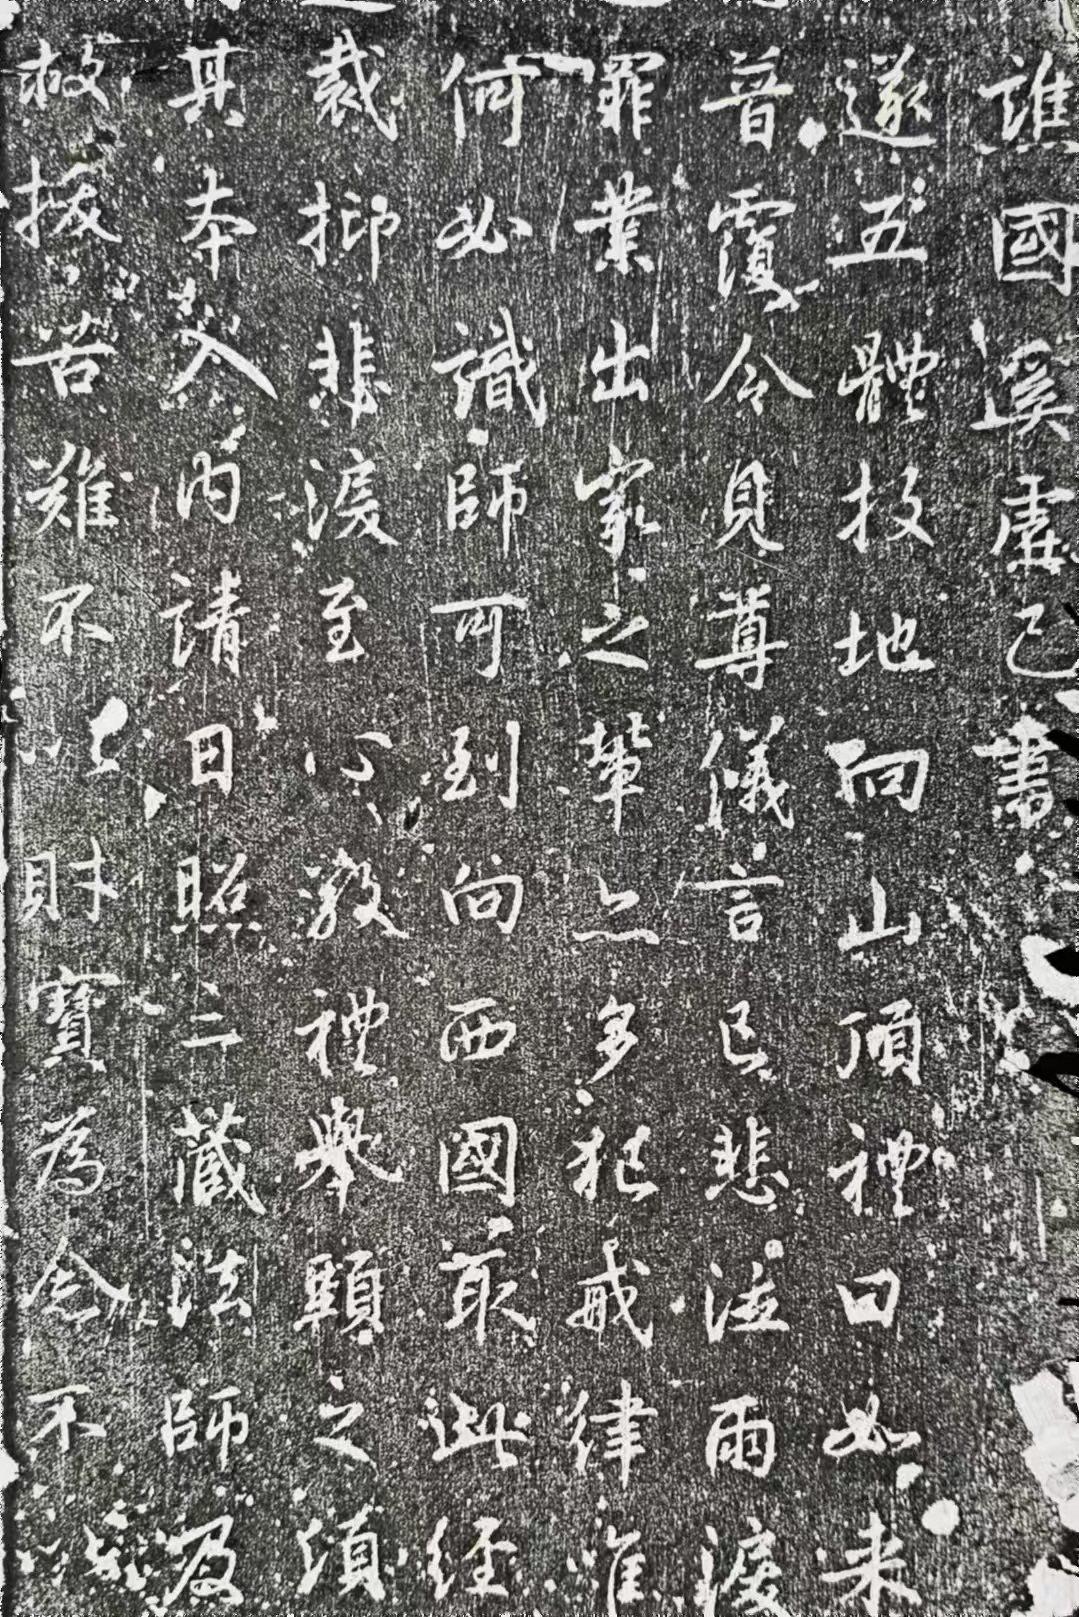 譙國奚虛己書
遂五體投地向山頂禮曰如来
普覆令見尊儀言已悲泣雨淚
罪業出家之輩亦多犯戒律唯
何如識師可到向西國取此經
裁抑悲淚至心敬禮舉頭之湏
其本入內請日照三藏法師及
救拔苦難不以財寶為念不